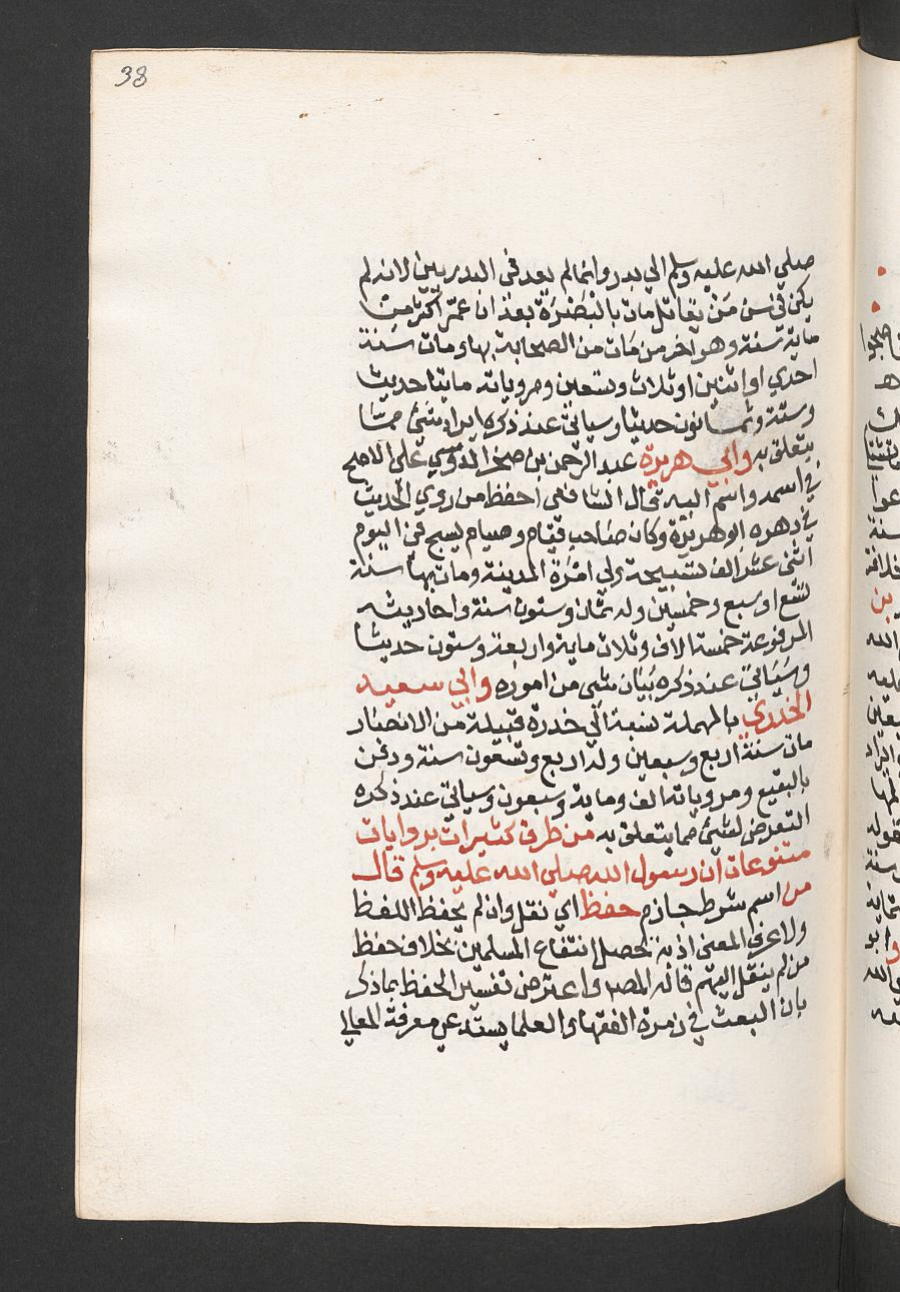 38
صلي الله عليه وسلم الي بدر وانما لم يعد في البدريين لانه لم
يكن في سن من يقاتل مات بالبصرة بعد ان عمر اكثر من
ماية سنة وهو اخر من مات من الصحابة بها ومات سنة
احدي او اثنين او ثلاث وتسعين ومروياته مايتا حديث
وستة وثمانون حديثا وسياتي عند ذكره ايراد شئ مما
يتعلق به وابي هريرة عبد الرحمن بن صخر الدوسي علي الاصح
في اسمه واسم ابيه قال الشافعي احفظ من روي الحديث
في دهره ابو هريرة وكان صاحب قيام وصيام يسبح في اليوم
اثني عشر الف تسبيحة ولي امرة المدينة ومات بها سنة
تسع او سبع وخمسين وله ثمان وستون سنة واحاديثه
المرفوعة خمسة الاف وثلاث ماية واربعة وستون حديثا
وسياتي عند ذكره بيان شي من اموره وابي سعيد
الخدري بالمهملة نسبة الي خدرة قبيلة من الانصار
مات سنة اربع وسبعين وله اربع وتسعون سنة ودفن
بالبقيع ومروياته الف وماية وسبعون وسياتي عند ذكره
التعرض لشئ مما يتعلق به من طرق كثيرات بروايات
متنوعات ان رسول الله صلي الله عليه وسلم قال
من اسم شرط جازم حفظ اي نقل وان لم يحفظ اللفظ
ولا عرف المعني اذ به يحصل انتفاع المسلمين بخلاف حفظ
من لم ينقل اليهم قاله المصـ واعترض تفسير الحفظ بما ذكر
بان البعث في زمرة الفقها والعلما يستدعي معرفة المعاني